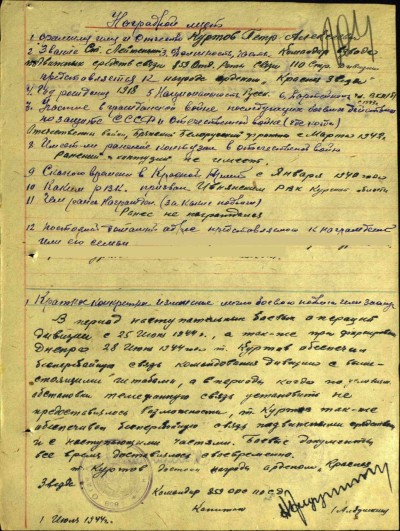 Наградной лист
1 Фамилия имя и Отчество Куртов Петр Алексеев
2 Звание Ст. Лейтенант 3 Должность, часть Командир взвода
подвижных средств связи 853 Отд. Роты связи 110 Стр.
представляется к награде орденом „Красная Звезда"
4 Год рождения 1918 5 Национальность Русск. 6 Партийность чл. ВКП(б)
7 Участие в гражданской войне последующих боевых действиях
по защите СССР и Отечественной войне (где когда)
Отечествен. война, Белорусский с Марта 1942.
8 Имеет ли ранения и контузии в отечественной войне
Ранений и контузий не имеет.
9 С какого времени в Красной Армии с Января 1940 года
10 Каким РВК призван Ивнянский РВК Курская область
11 Чем ранее награжден (за какие подвиги)
Ранее не награждался
12 Постоянный домашний адрес представляемого к награждению
или его семьи
1 Краткое конкретное изложение личного боевого подвига или заслуг
В период наступательных боевых операций
дивизии с 25 Июня 1944 г., а так-же при форсировании
Днепра 28 Июня 1944 т. Куртов обеспечил
бесперебойную связь командования дивизии с выше-
стоящими штабами, а в периоды когда по условиям
обстановки телефонную связь установить не
представлялось возможности, т. Куртов так-же
обеспечивал бесперебойную связь подвижными средствами
и с наступающими частями. Боевые документы
все время доставлялись своевременно.
т. Куртов достоин награды орденом „Красная
Звезда"
Командир 853
Капитан
1 Июля 1944 г.